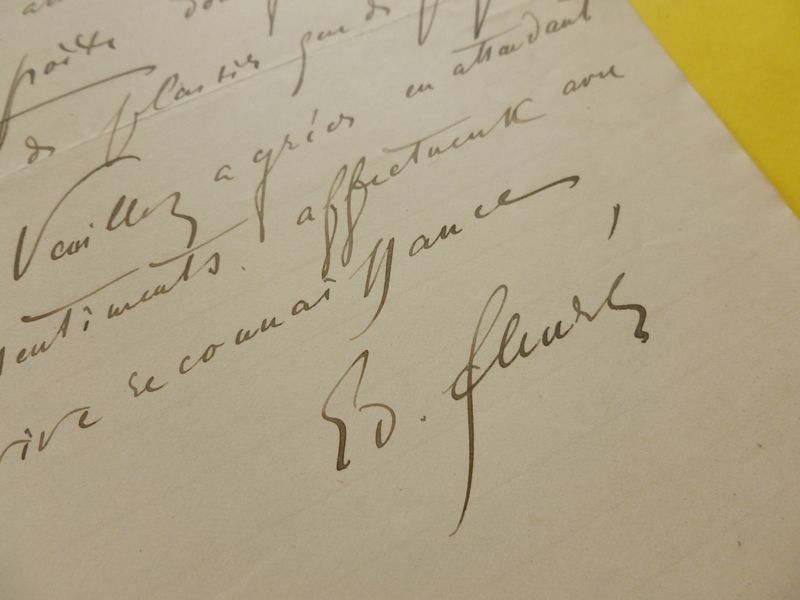 poëte
de plaisir que de
Veuillez agréer en attendant
sentiments affectueux avec
vive reconnaissance
Ed. Fleury